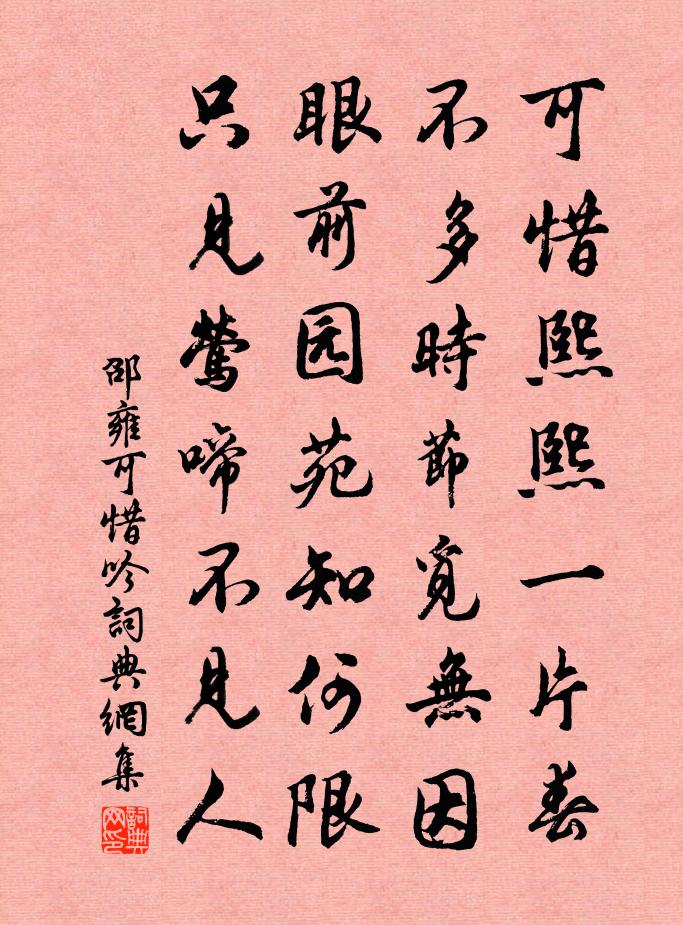 可惜熙熙一片春
不多時節覓無因
眼前园苑知何限
只見鶯啼不見人
邵雍可惜吟詞典網集
詞典网印